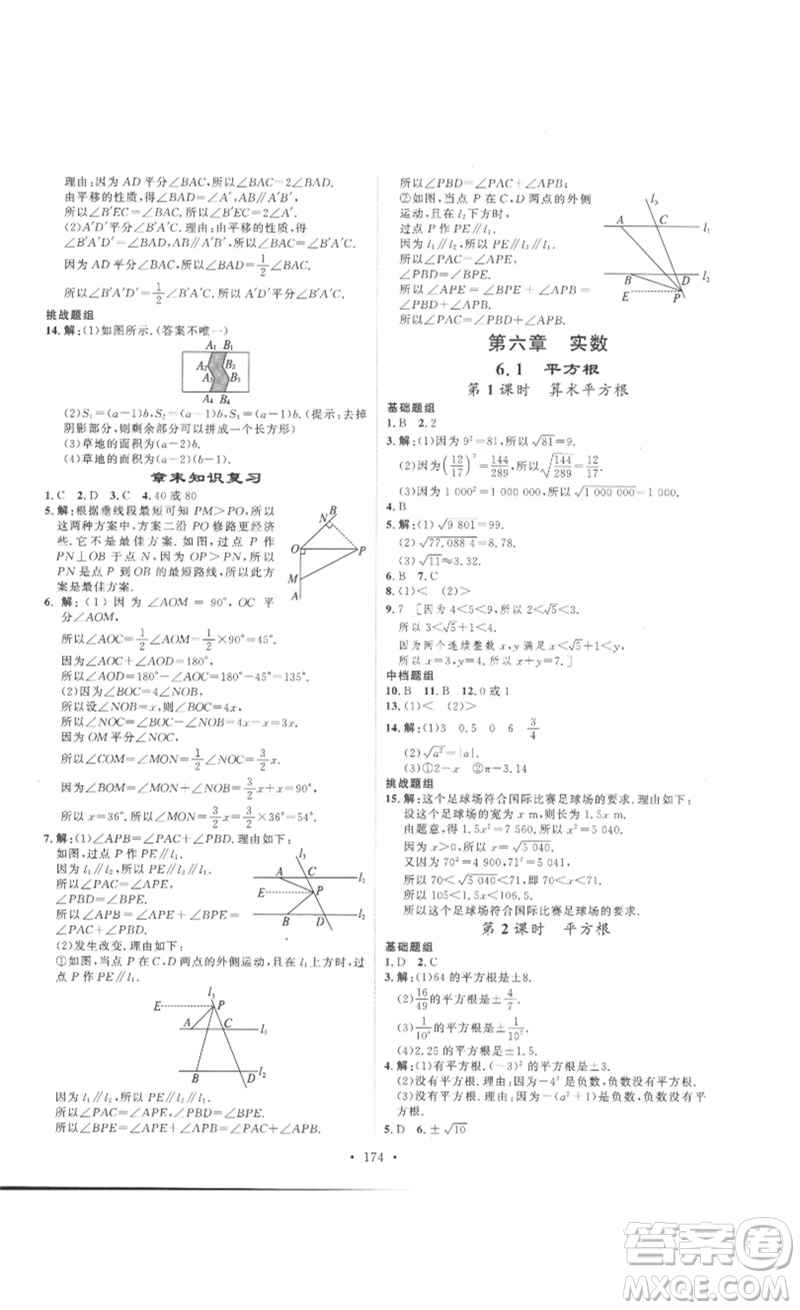 理由:因为 AD 平分∠BAC,所以∠BAC=2∠BAD.
由平移的性质,得∠BAD=∠A′,AB∥A′B′.
所以∠B′EC=∠BAC. 所以∠B′EC=2∠A′.
(2)A′D′平分∠B′A′C. 理由:由平移的性质,得
∠B′A′D′=∠BAD,AB∥A′B′. 所以∠BAC=∠B′A′C.
因为∠BAD=1/2∠BAC,
所以∠B′A′D′=1/2∠B′A′C. 所以 A′D′平分∠B′A′C.
挑战题组
14.解:(1)如图所示.(答案不唯一)
A₁ B₁
A₂ B₂
A₃ B₃
A₄ B₄
(2)S₁=(a-1)b,S₂=(a-1)b.(提示:去掉
阴影部分,则剩余部分可以拼成一个长方形)
(3)草地的面积为(a-1)b.
(4)草地的面积为(a-2)(b-1).
章末知识复习
1. C 2. D 3. C 4. 40 或 80
5.解:根据垂线段最短可知 PM>PO,所以
这两种方案中,方案二沿 PO 修路更经济
些.它不是最佳方案.如图,过点 P 作
PN⊥OB 于点 N,因为 OP>PN,所以
PN 是 P 到 OB 的最短路线,所以此方
案是最佳方案.
B
N
O P
M
A
6.解:(1)因为∠AOM=90°,OC 平
分∠AOM,
所以∠AOC=1/2∠AOM=1/2×90°=45°.
因为∠AOC+∠AOD=180°,
所以∠AOD=180°-∠AOC=180°-45°=135°.
(2)因为∠BOC=4∠NOB,
所以设∠NOB=x,则∠BOC=4x.
所以∠NOC=∠BOC-∠NOB=4x-x=3x.
因为 OM 平分∠NOC,
所以∠COM=∠MON=1/2∠NOC=3/2x.
因为∠BOM=∠MON+∠NOB=3/2x+x=90°,
所以 x=36°. 所以∠MON=3/2x=3/2×36°=54°.
7.解:(1)∠APB=∠PAC+∠PBD. 理由如下:
如图,过点 P 作 PE∥l₁.
因为 l₁∥l₂,所以 PE∥l₂∥l₁.
所以∠PAC=∠APE,
∠PBD=∠BPE.
所以∠APB=∠APE+∠BPE=
∠PAC+∠PBD.
l₃
A C l₁
E P
B D l₂
(2)发生改变.理由如下:
①如图,当点 P 在 C,D 两点的外侧运动,且在 l₁ 上方时,过
点 P 作 PE∥l₁.
l₃
E P
A C l₁
B D l₂
因为 l₁∥l₂,所以 PE∥l₂∥l₁.
所以∠PAC=∠APE,∠PBD=∠BPE.
所以∠BPE=∠PAC+∠APB.
所以∠PBD=∠PAC+∠APB.
②如图,当点 P 在 C,D 两点的外侧
运动,并在 l₂ 下方时,
过点 P 作 PE∥l₁.
因为 l₁∥l₂,所以 PE∥l₂∥l₁.
所以∠PAC=∠APE,
∠PBD=∠BPE.
所以∠APE=∠PBD+∠APB.
所以∠PAC=∠PBD+∠APB.
l₃
A C l₁
B D l₂
E P
第六章 实数
6.1 平方根
第 1 课时 算术平方根
基础题组
1. B 2. 2
3.解:(1)因为 9²=81,所以√81=9.
(2)因为(12/17)²=144/289,所以√(144/289)=12/17.
(3)因为 1 000²=1 000 000,所以√1 000 000=1 000.
4. B
5.解:(1)√9 801=99.
(2)√77.088 4=8.78.
(3)√11≈3.32.
6. B 7. C
8. (1)< (2)>
9. 7 [因为 4<5<9,所以 2<√5<3.
所以 3<√5+1<4.
因为两个连续整数 x,y 满足 x<√5+1<y,
所以 x=3,y=4. 所以 x+y=7.]
中档题组
10. B 11. B 12. 0 或 1
13. (1)< (2)>
14.解:(1)3 0.5 0 6 3/4
(2)√a²=|a|.
(3)①2-x ②π-3.14
挑战题组
15.解:这个足球场符合国际比赛足球场的要求.理由如下:
设这个足球场的宽为 x m,则长为 1.5x m.
由题意,得 1.5x²=7 560,所以 x²=5 040.
因为 x>0,所以 x=√5 040.
又因为 70²=4 900,71²=5 041,
所以 70<√5 040<71,即 70<x<71.
所以 105<1.5x<106.5.
所以这个足球场符合国际比赛足球场的要求.
第 2 课时 平方根
基础题组
1. D 2. C
3.解:(1)64 的平方根是±8.
(2)16/49的平方根是±4/7.
(3)1/10⁴的平方根是±1/10².
(4)2.25 的平方根是±1.5.
4.解:(1)有平方根.(-3)² 的平方根是±3.
(2)没有平方根.理由:因为-4² 是负数,负数没有平方根.
(3)没有平方根.理由:因为-(a²+1)是负数,负数没有平
方根.
5. D 6. ±√10
• 174 •
答案圈
MXQE.COM